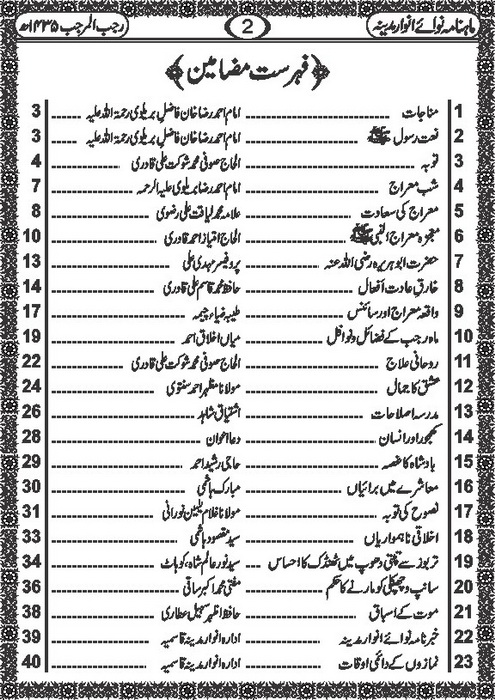 ماہنامہ نوائے انوار مدینہ 2 رجب المرجب ۱۴۳۵ھ
﴿فہرست مضامین﴾
1 مناجات امام احمد رضا خان فاضل بریلوی رحمۃ اللہ علیہ 3
2 نعت رسول ﷺ امام احمد رضا خان فاضل بریلوی رحمۃ اللہ علیہ 3
3 توبہ الحاج صوفی محمد شوکت علی قادری 4
4 شب معراج امام احمد رضا بریلوی علیہ الرحمہ 7
5 معراج کی سعادت علامہ محمد لیاقت علی رضوی 8
6 معجزہ معراج النبی ﷺ الحاج امتیاز احمد قادری 10
7 حضرت ابوہریرہ رضی اللہ عنہ پروفیسر مہدی علی 13
8 خارق عادت افعال حافظ محمد قاسم علی قادری 14
9 واقعہ معراج اور سائنس طیبہ ضیاء چیمہ 17
10 ماہ رجب کے فضائل و نوافل میاں اخلاق احمد 19
11 روحانی علاج الحاج صوفی محمد شوکت علی قادری 22
12 عشق کا جمال مولانا مظہر احمد سنتوی 24
13 مدرسہ اصلاحات اشتیاق شاہد 26
14 کھجور اور انسان دعا اعوان 28
15 بادشاہ کا غصہ حاجی رشید احمد 29
16 معاشرے میں برائیاں مبارک ہاشمی 30
17 نصوح کی توبہ مولانا غلام یٰسین نورانی 31
18 اخلاقی ناہمواریاں سید مقصود ہاشمی 33
19 تربوز سے تپتی دھوپ میں ٹھنڈک کا احساس سید نور عالم شاہ، کوہاٹ 34
20 سانپ و چھپکلی کو مارنے کا حکم مفتی محمد اکبر ساقی 36
21 موت کے اسباق حافظ اظہر سہیل عطاری 38
22 خبرنامہ نوائے انوار مدینہ ادارہ انوار مدینہ قاسمیہ 39
23 نمازوں کے دائمی اوقات ادارہ انوار مدینہ قاسمیہ 40